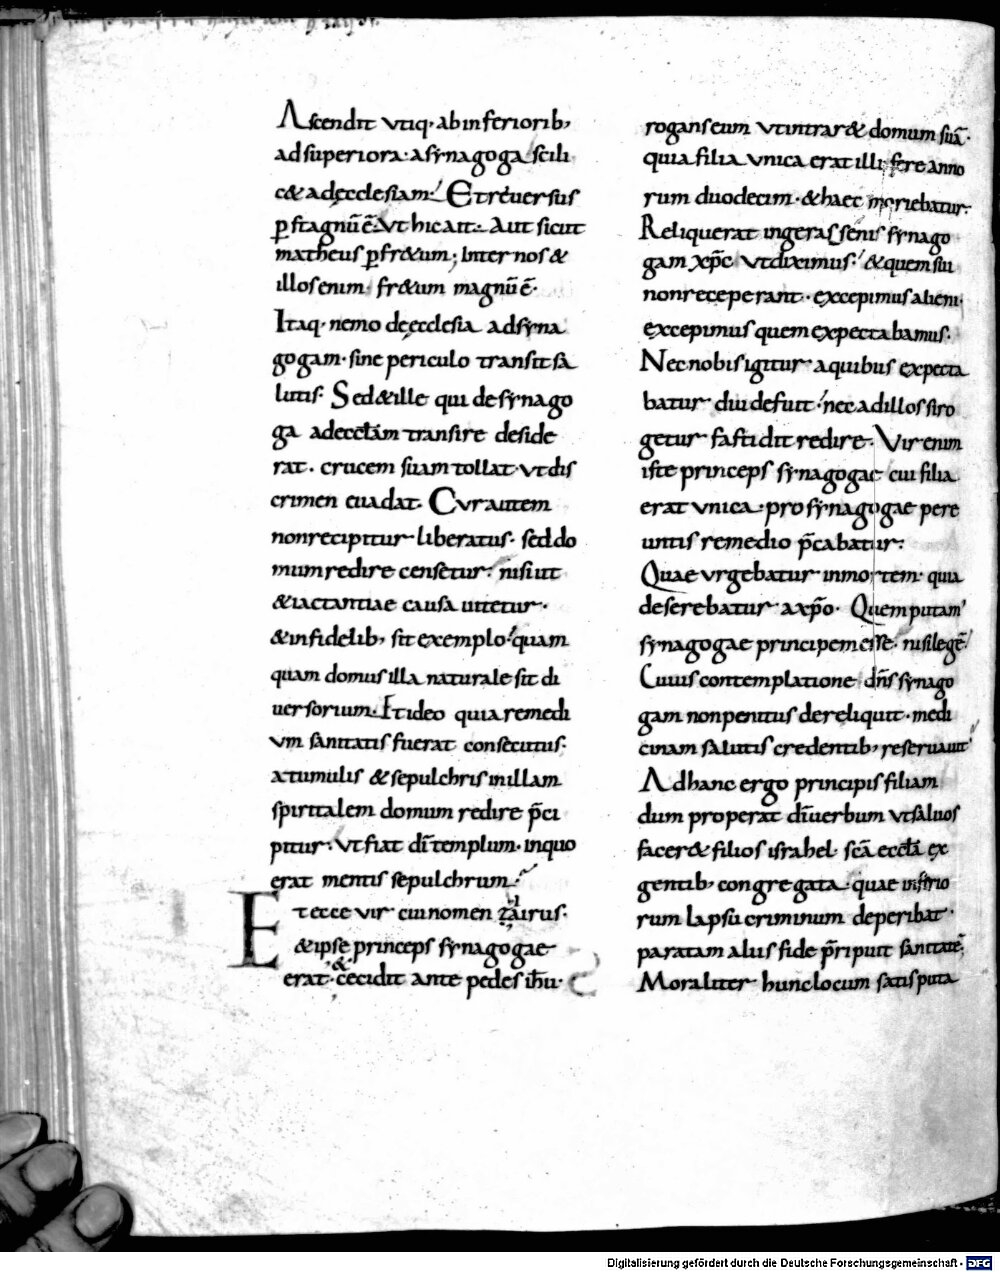 Ascendit utiq· ab inferiorib;
ad superiora· a synagoga scili
c& ad ęcclesiam· Et reversus
p stagnū ē· Ut hic ait· Aut sicut
matheus p fr&um; Inter nos &
illos enim fr&um magnū ē·
Itaq· nemo de ęcclesia ad syna
gogam· sine periculo transit sa
lutis· Sed & ille qui de synago
ga ad ecclam transire deside
rat· crucem suam tollat· ut dis
crimen euadat· Cur autem
non recipitur liberatus· sed do
mum redire censetur· nisi ut
& iactantiae causa uitetur·
& infidelib; sit exemplo· quam
quam domus illa naturale sit di
uersorium· Et ideo quia remedi
um sanitatis fuerat consecutus·
a tumulis & sepulchris in illam
spiritalem domum redire p̄ci
pitur· Ut fiat dī templum· in quo
erat mentis sepulchrum·
Et ecce vir cui nomen iairus·
& ipse princeps synagogae
erat· & cecidit ante pedes ihu·
rogans eum ut intrar& domum suā·
quia filia unica erat illi fere anno
rum duodecim· & haec moriebatur·
Reliquerat in gerasenis synago
gam xp̄c ut diximus· & quem sui
non receperant· excepimus alieni·
excepimus quem expectabamus·
Nec nobis igitur a quibus expecta
batur diu defuit· nec ad illos si ro
getur fastidit redire· Vir enim
iste princeps synagogae cui filia
erat unica· pro synagogae pere
untis remedio p̄cabatur·
Quae urgebatur in mortem· quia
deserebatur a xp̄o· Quem putam'
synagogae principem esse· nisi legē·
Cuius contemplatione dn̄s synago
gam non penitus dereliquit· medi
cinam salutis credentib; reseruauit
Ad hanc ergo principis filiam
dum properat dī uerbum ut saluos
facer& filios israhel· scā ecclā ex
gentib; congregata· quae inferio
rum lapsu criminum deperibat·
paratam aliis fide p̄ripuit sanitatē·
Moraliter hunc locum satis puta
Digitalisierung gefördert durch die Deutsche Forschungsgemeinschaft - DFG